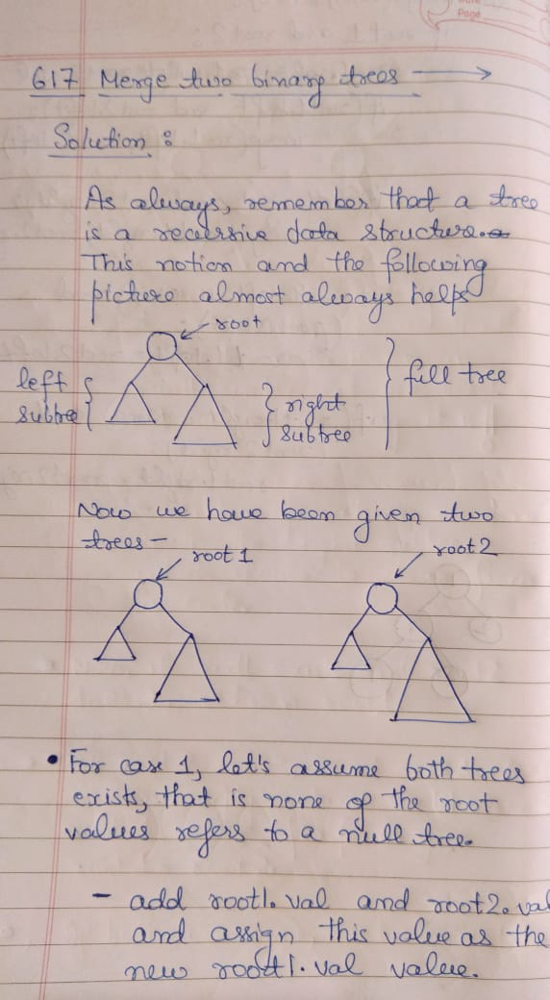 Page
617 Merge two binary trees
Solution :
As always, remember that a tree
is a recursive data structure.
This notion and the following
picture almost always helps
root
left
subtree
right
subtree
full tree
Now we have been given two
trees -
root 1
root 2
• For case 1, let's assume both trees
exists, that is none of the root
values refers to a null tree.
- add root1.val and root2.val
and assign this value as the
new root1.val value.